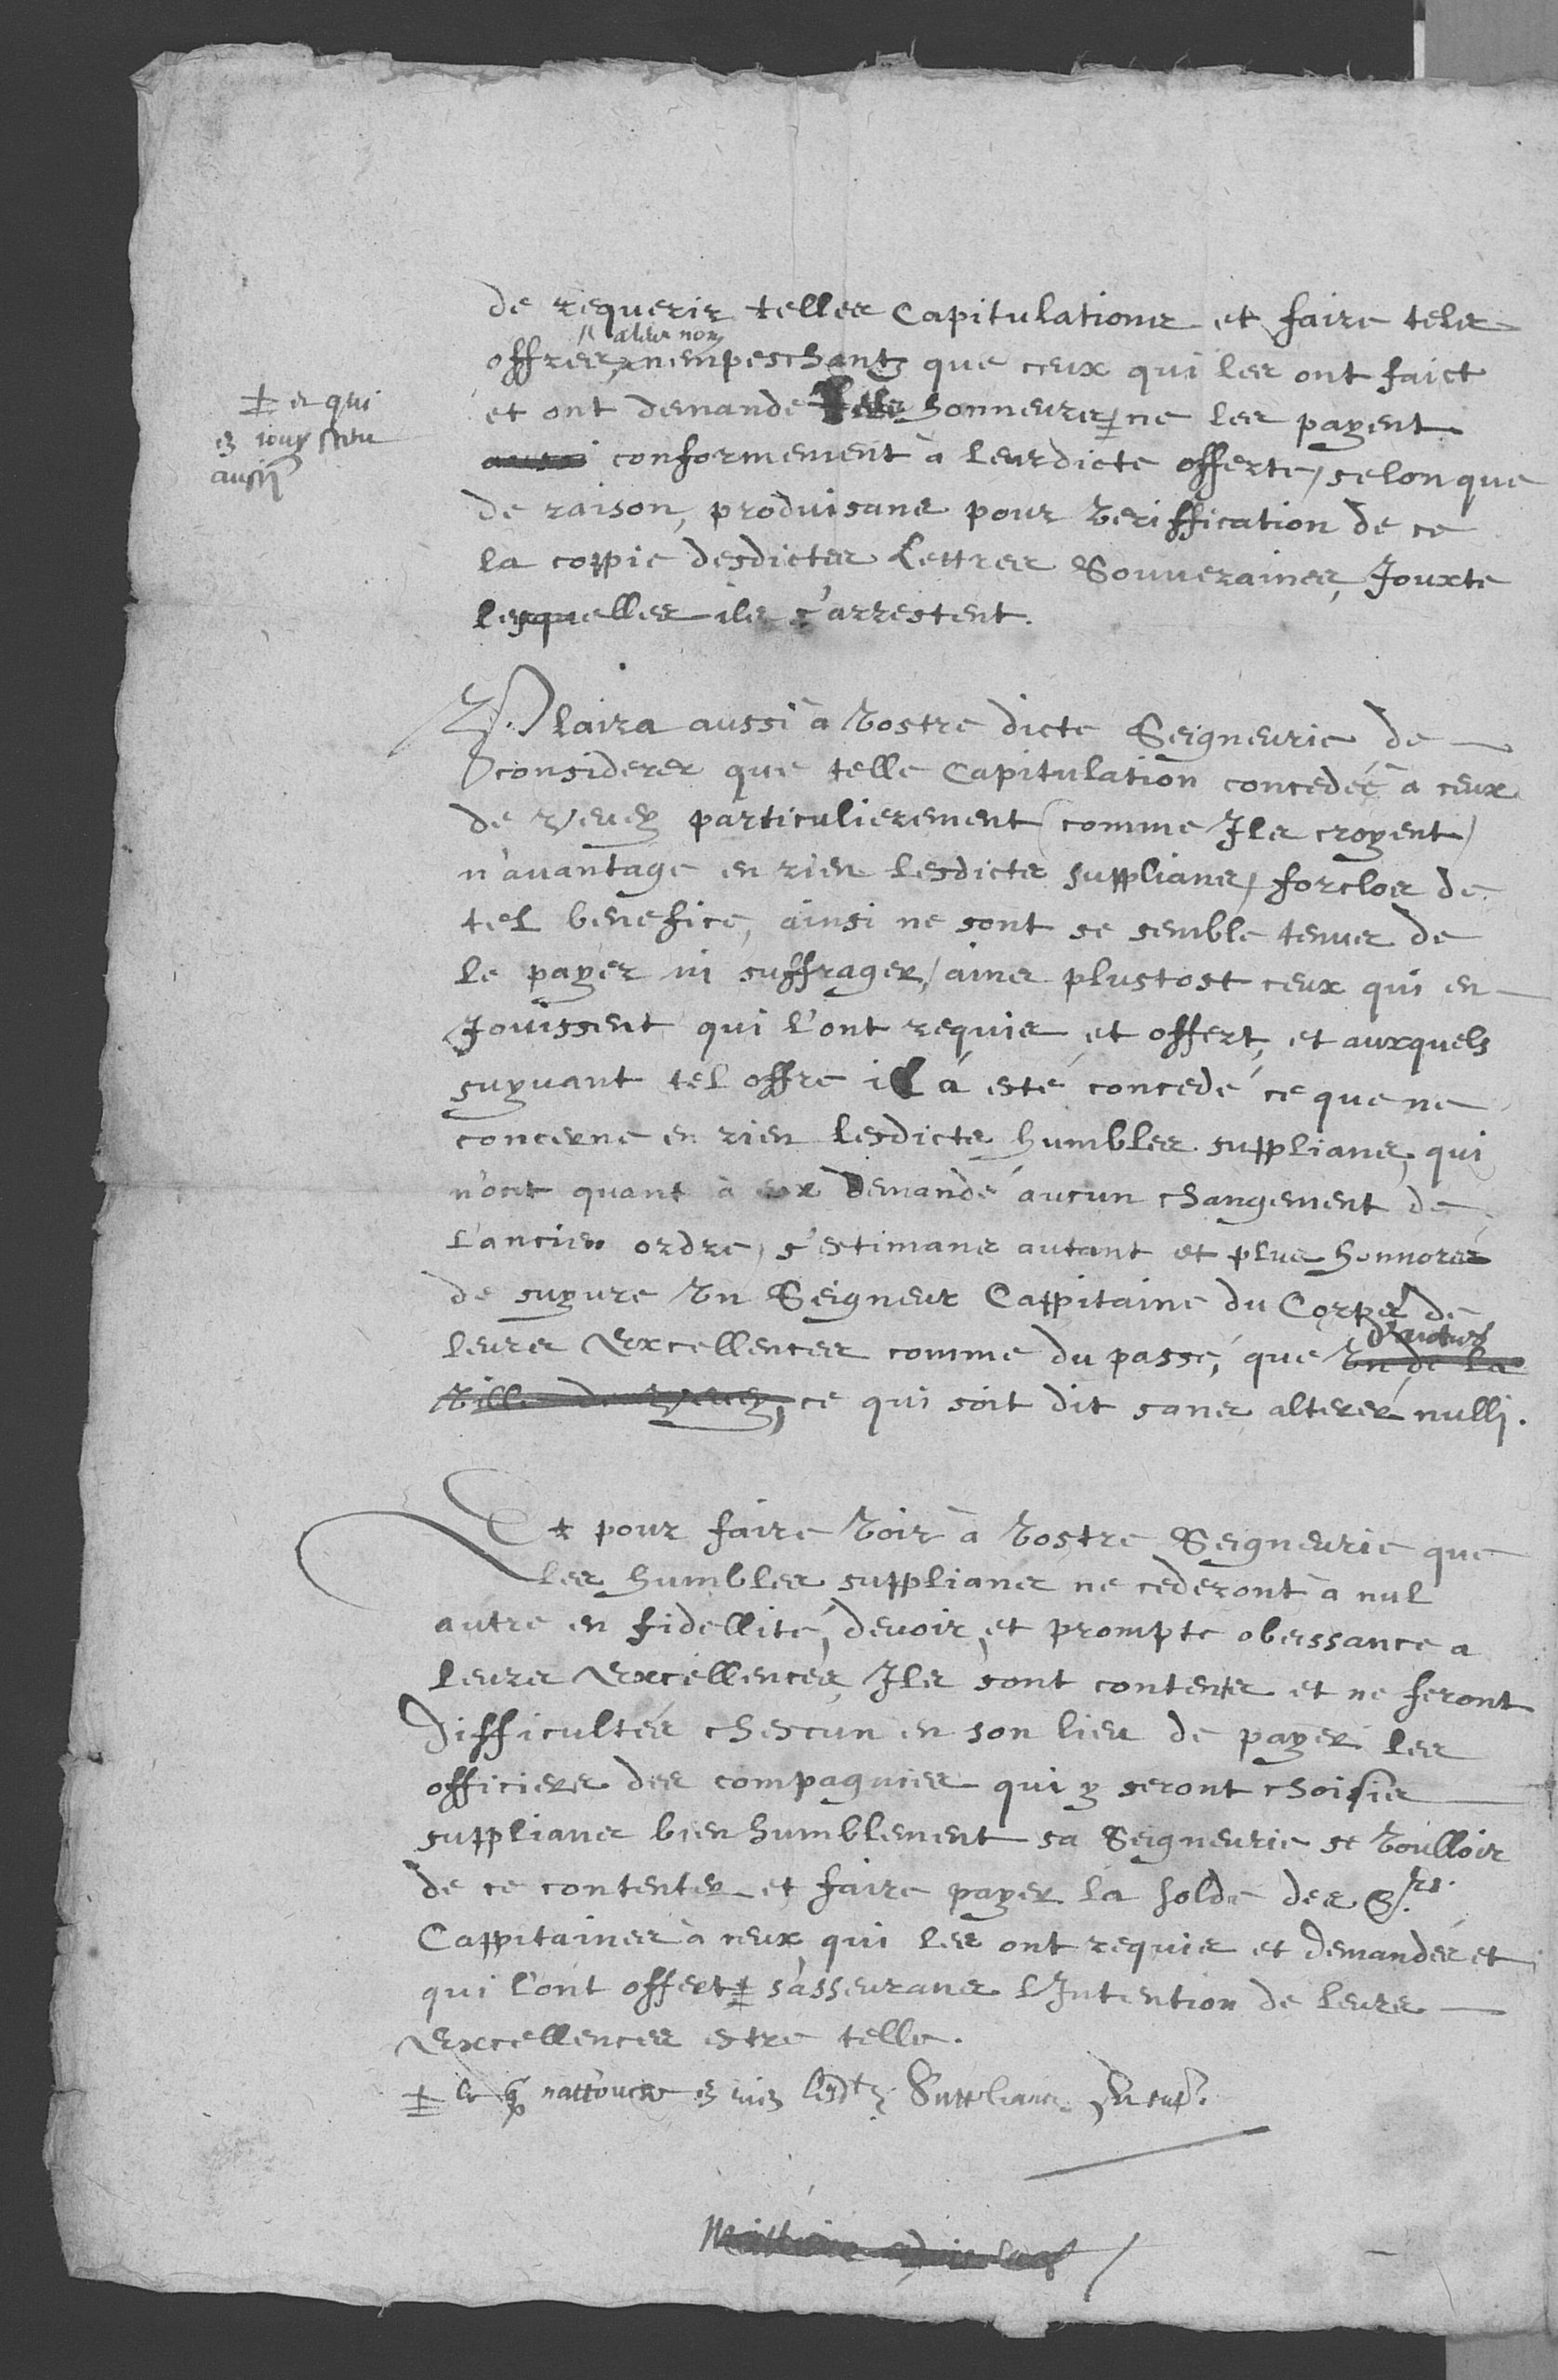 de requerir telles Capitulations et faire tels
offres, nempeschantz que ceux qui les ont faict
et ont demande tels honneurs ‡ ne les payent
‡ et qui
en
aussy
aussi conformement à leurdicte offerte, selon que
de raison, produisans pour veriffication de ce
la coppie desdictes Lettres Souveraines, Jouxte
lesquelles ils s'arrestent.
Plaira aussi à vostre dicte Seigneurie de
considerer que telle Capitulation concedée à ceux
de Vevey particulierement (comme Ils croyent)
n'avantage en rien lesdicts supplians, forclos de
tel benefice, ainsi ne sont se semble tenus de
le payer ni suffrager, ains plustost ceux qui en
Jouissent qui l'ont requis et offert, et auxquels
suyvant tel offre il à esté concedé ce que ne
concerne en rien lesdicts humbles supplians, qui
n'ont quant à eux demandé aucun changement de
l'ancien ordre, s'estimans autant et plus honnorés
de suyvre un Seigneur Cappitaine du Corps de
d'autres
leurs Excellences comme du passé, que un de la
ville de Vevey, ce qui soit dit sans alterer nulli.
Et pour faire voir à vostre Seigneurie que
les humbles supplians ne cederont à nul
autre en fidellité, devoir, et prompte obeissance a
leurs Excellences, Ils sont contents et ne feront
difficultés chescun en son lieu de payer les
officiers des compagnies qui y seront choisis
supplians bien humblement sa Seigneurie se voulloir
de ce contenter et faire payer la solde des Srs.
Cappitaines à ceux qui les ont requis et demandés et
qui l'ont offert ‡ s'asseurans l'Intention de leurs
Excellences estre telle.
‡ et q̃ n'attouche en rien lesdtz Supplians